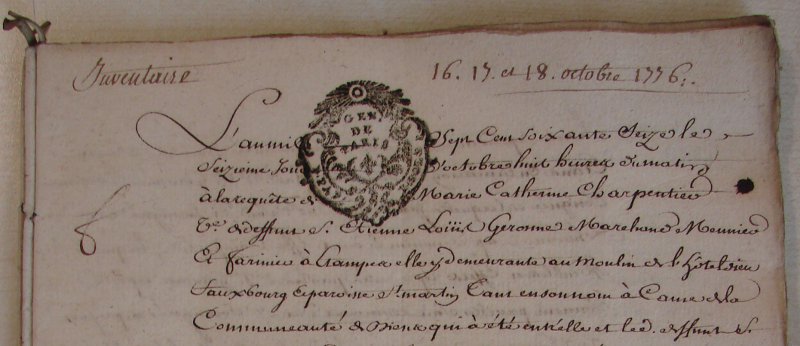 Inventaire
16. 17. et 18. octobre 1776.
GEN. DE PARIS
L'an mil Sept Cent Soixante Seize le
Seizieme Jour d'octobre huit heures du matin
à la requête de Marie Catherine Charpentier
Ve. de deffunt S. Etienne Loüis Geronne Marchand Meunier
Et farinier à Etampes elle y demeurante au moulin de l'hôtel dieu
fauxbourg & paroisse St martin tant en son nom à Cause de la
Communeauté de biens qui à été entre elle et led. deffunt S.